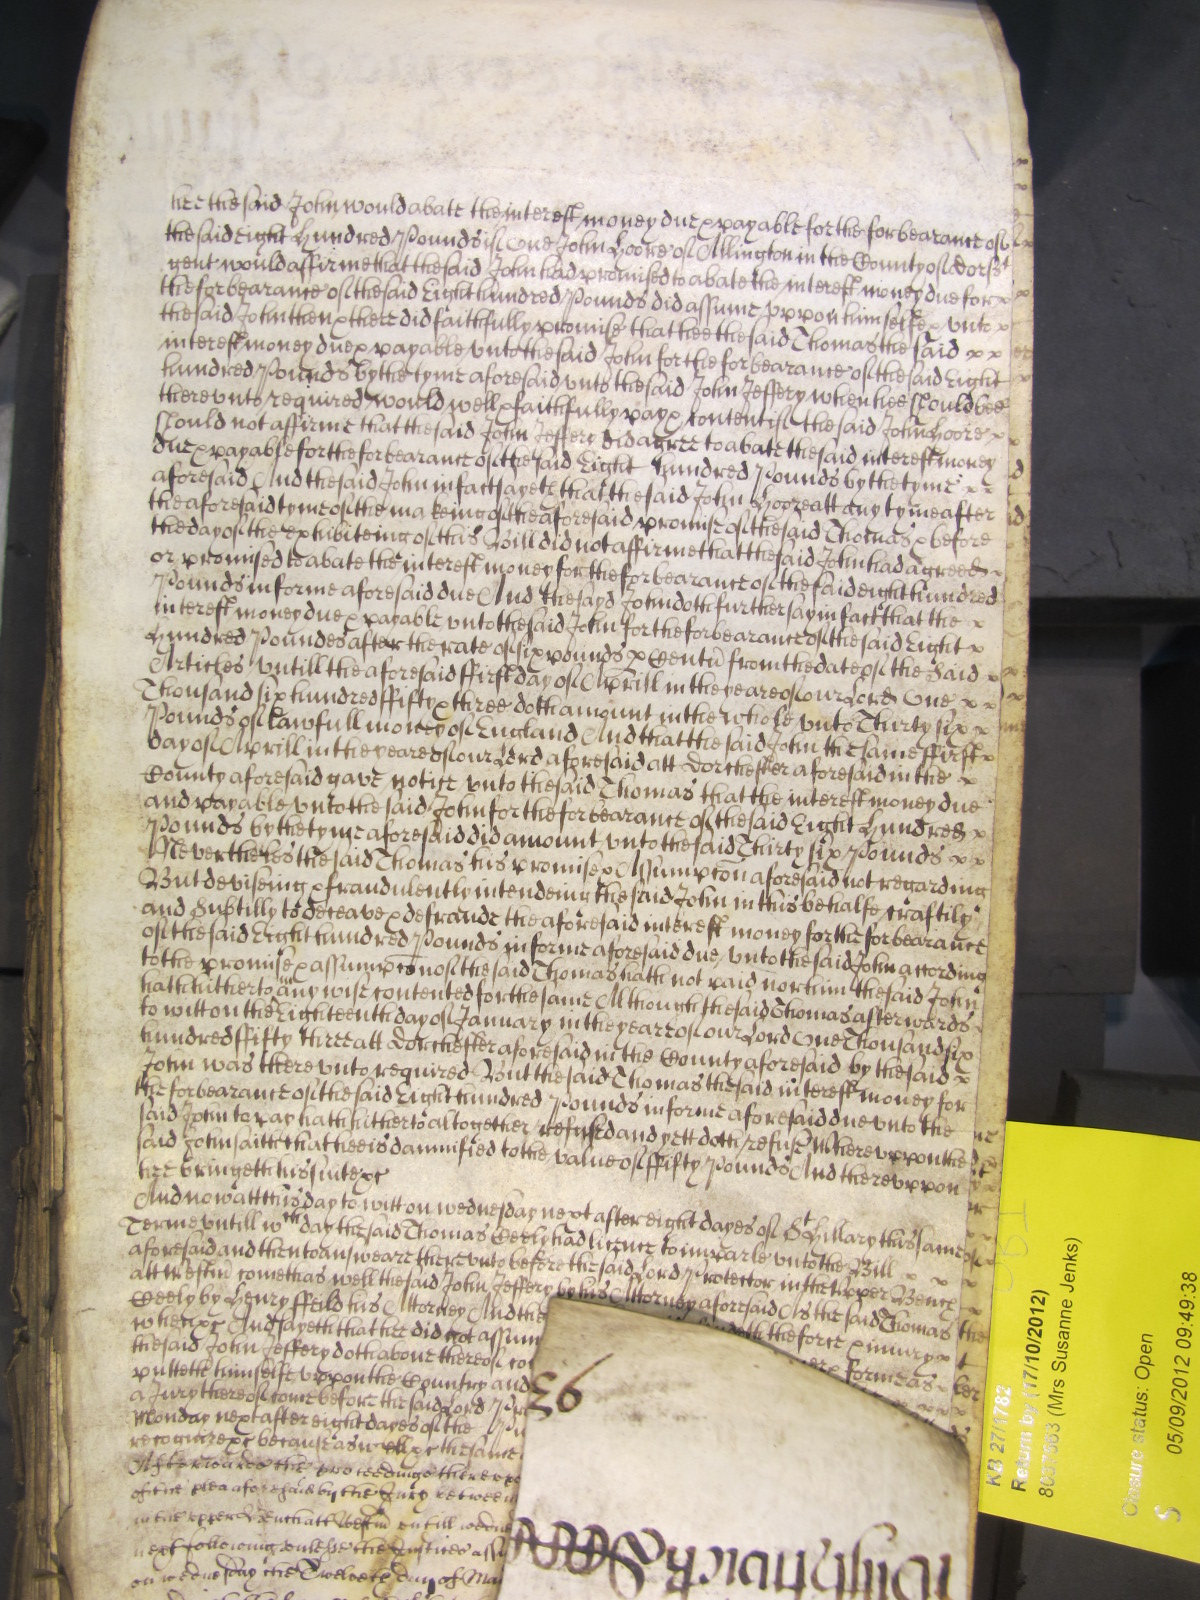 hee the said John would abate the interest money due & payable for the forbearance of
the said Eight Hundred Pounds if One John Hoore of Allington in the County of Dorst
gent would affirme that the said John had promised to abate the interest money due for x
the forbearance of the said Eight hundred Pounds did assume uppon himselfe & unto x
the said John then & there did faithfully promise that hee the said Thomas the said x x
interest money due & payable unto the said John for the forbearance of the said Eight
hundred Pounds by the tyme aforesaid unto the said John Jeffery when hee should bee
thereunto required would well & faithfully pay & content if the said John Hoore x
should not affirme that the said John Jeffery did agree to abate the said interest money
due & payable for the forbearance of the said Eight hundred Pounds by the tyme x x
aforesaid And the said John in fact sayeth that the said John Hoore att any tyme after
the aforesaid tyme of the makeing of the aforesaid promise of the said Thomas & before
the day of the exhibiteing of this Bill did not affirme that the said John had agreed x
or promised to abate the interest money for the forbearance of the said eight hundred
Pounds in forme aforesaid due And the sayd John doth further say in fact that the x
interest money due & payable unto the said John for the forbearance of the said Eight x
Hundred Poundes after the rate of six pounds p Centu from the date of the Said x
Articles untill the aforesaid ffirst day of Aprill in the yeare of our Lord One x x
Thousand six hundred ffifty & three doth amount in the whole unto Thirty six x x
Pounds of lawfull money of England And that the said John the same ffirst x
day of Aprill in the yeare of our Lord aforesaid att Dorchester aforesaid in the x
County aforesaid gave notice unto the said Thomas that the interest money due
and payable unto the said John for the forbearance of the said Eight Hundred x
Pounds by the tyme aforesaid did amount unto the said Thirty six Pounds x x
Neverthelesse the said Thomas his promise & Assumpcon aforesaid not regarding
But deviseing & fraudulently intendeing the said John in this behalfe craftily
and Subtilly to deceave & defraude the aforesaid interest money for the forbearance
of the said Eight hundred Pounds in forme aforesaid due unto the said John according
to the promise & assumpcon of the said Thomas hath not paid nor him the said John
hath hitherto any wise contented for the same Although the said Thomas afterwards
to witt on the Eighteenth day of January in the yeare of our Lord One Thousand six
hundred ffifty three att Dorchester aforesaid in the County aforesaid by the said x
John was thereunto required But the said Thomas the said interest money for
the forbearance of the said Eight hundred Pounds in forme aforesaid due unto the
said John to pay hath hitherto altogether refused and yett doth refuse Whereuppon the
said John saith that hee is damnified to the value of ffifty Pounds And thereuppon
hee bringeth his suite &c
And now att this day to witt on wednesday next after eight dayes of St Hillary this same
Terme untill wch day the said Thomas Ceely had licence to imparle unto the Bill x x x
aforesaid and then to answeare thereunto before the said Lord Protector in the Upper Bench
att Westm come th as well the said John Jeffery by his Attorney aforesaid As the said Thomas
Ceely by Henry ffeild his Attorney And the
when &c And sayeth that hee did not assum
the said John Jeffery doth above thereof
putteth himselfe uppon the Country and
a Jury thereof come before the said Lord
Monday next after eight dayes of the
recognize &c because as well &c the same
Afterwards the proceedings thereupo
of the plea aforesaid by the Jury betweene
in the upper Bench att Westm untill wedne
next following unlesse the Justices assi
on wednesday the Twelveth day of Ma
93
KB 27/1782
Return by (17/10/2012)
(Mrs Susanne Jenks)
Closure status: Open
05/09/2012 09:49:38
S